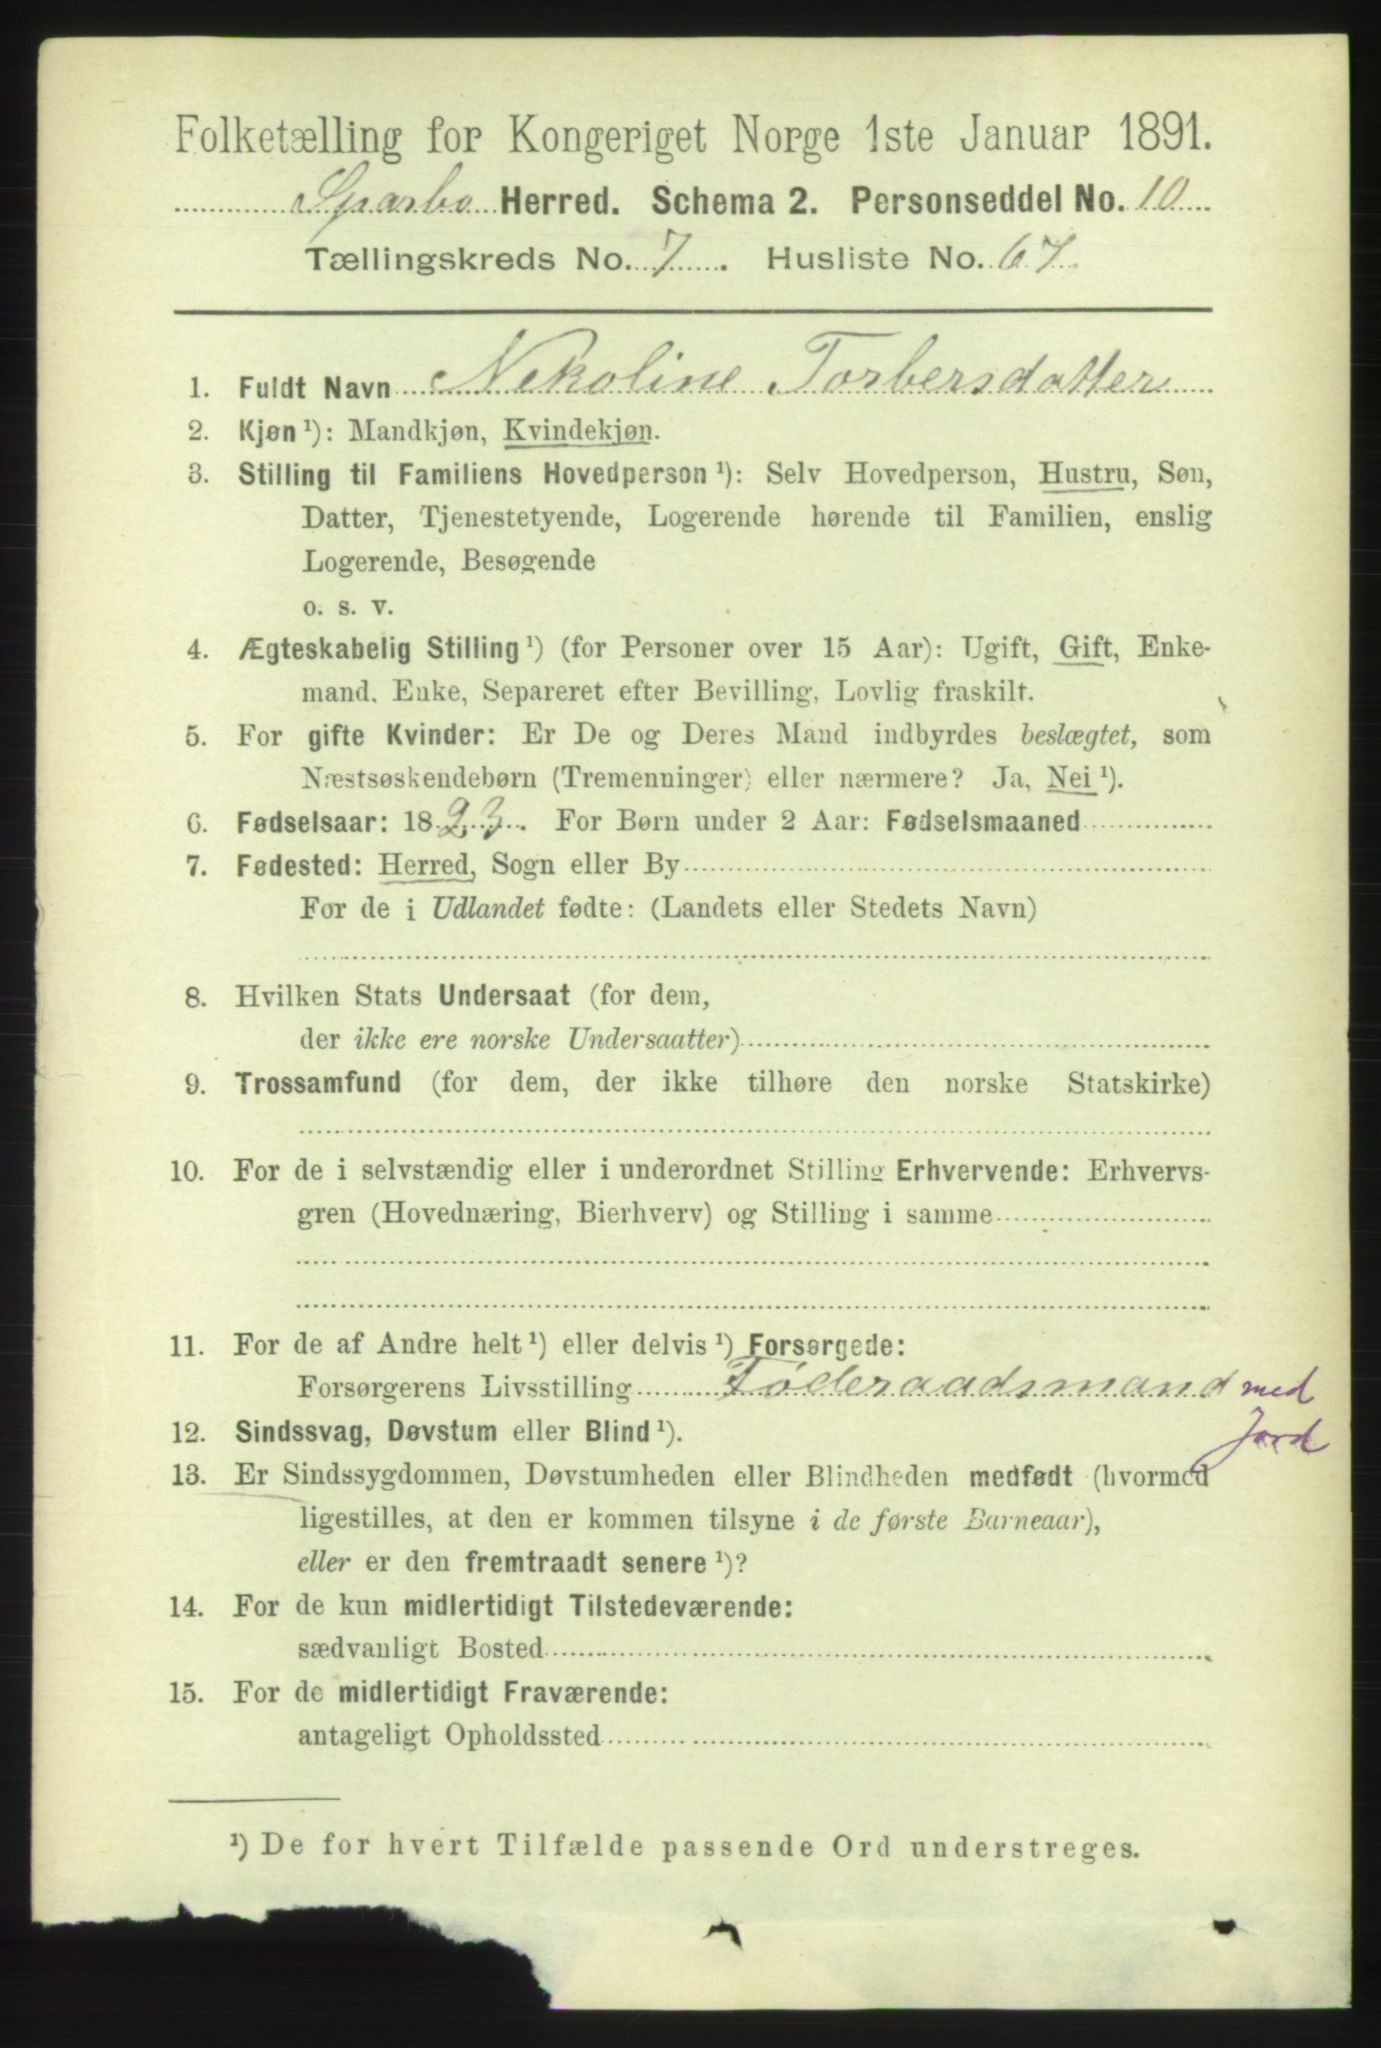 Folketælling for Kongeriget Norge 1ste Januar 1891.
Sparbo Herred. Schema 2. Personseddel No. 10
Tællingskreds No. 7. Husliste No. 67
1. Fuldt Navn Nekoline Torbersdatter
2. Kjøn ¹): Mandkjøn, Kvindekjøn.
3. Stilling til Familiens Hovedperson ¹): Selv Hovedperson, Hustru, Søn,
Datter, Tjenestetyende, Logerende hørende til Familien, enslig
Logerende, Besøgende
o. s. v.
4. Ægteskabelig Stilling ¹) (for Personer over 15 Aar): Ugift, Gift, Enke-
mand, Enke, Separeret efter Bevilling, Lovlig fraskilt.
5. For gifte Kvinder: Er De og Deres Mand indbyrdes beslægtet, som
Næstsøskendebørn (Tremenninger) eller nærmere? Ja, Nei ¹).
6. Fødselsaar: 1823. For Børn under 2 Aar: Fødselsmaaned
7. Fødested: Herred, Sogn eller By
For de i Udlandet fødte: (Landets eller Stedets Navn)
8. Hvilken Stats Undersaat (for dem,
der ikke ere norske Undersaatter)
9. Trossamfund (for dem, der ikke tilhøre den norske Statskirke)
10. For de i selvstændig eller i underordnet Stilling Erhvervende: Erhvervs-
gren (Hovednæring, Bierhverv) og Stilling i samme
11. For de af Andre helt ¹) eller delvis ¹) Forsørgede:
Forsørgerens Livsstilling Føderaadsmand med
Jord
12. Sindssvag, Døvstum eller Blind ¹).
13. Er Sindssygdommen, Døvstumheden eller Blindheden medfødt (hvormed
ligestilles, at den er kommen tilsyne i de første Barneaar),
eller er den fremtraadt senere ¹)?
14. For de kun midlertidigt Tilstedeværende:
sædvanligt Bosted
15. For de midlertidigt Fraværende:
antageligt Opholdssted
¹) De for hvert Tilfælde passende Ord understreges.